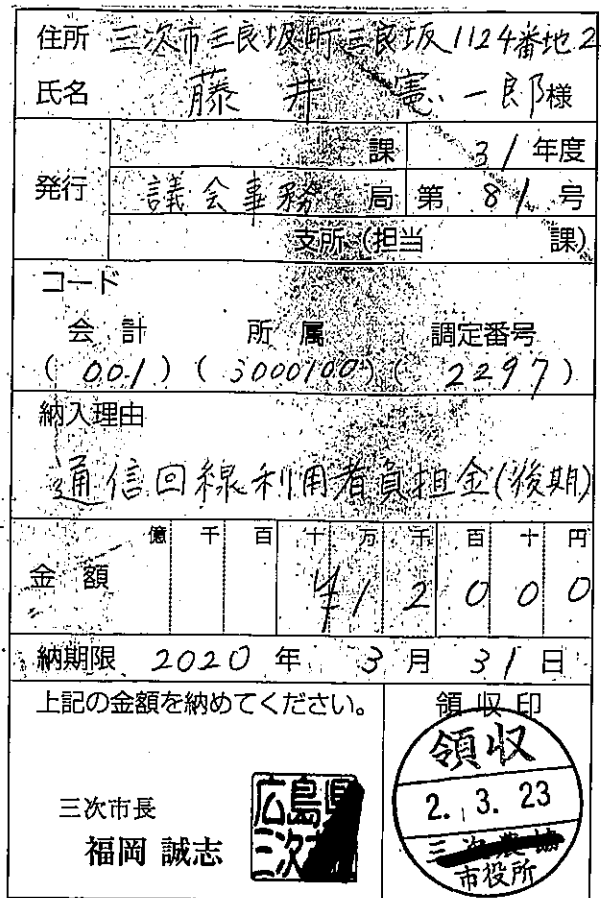 住所 三次市三良坂町三良坂1124番地2
氏名 藤井憲一郎様
発行
課 31年度
議会事務局 第81号
支所(担当 課)
コード
会計 所属 調定番号
(001)(5000100)(2297)
納入理由
通信回線利用者負担金(後期)
億 千 百 十 万 千 百 十 円
金額 ¥12000
納期限 2020年 3月 31日
上記の金額を納めてください。
領収印
領収
2. 3. 23
三次農協
市役所
三次市長
福岡 誠志
広島県
三次